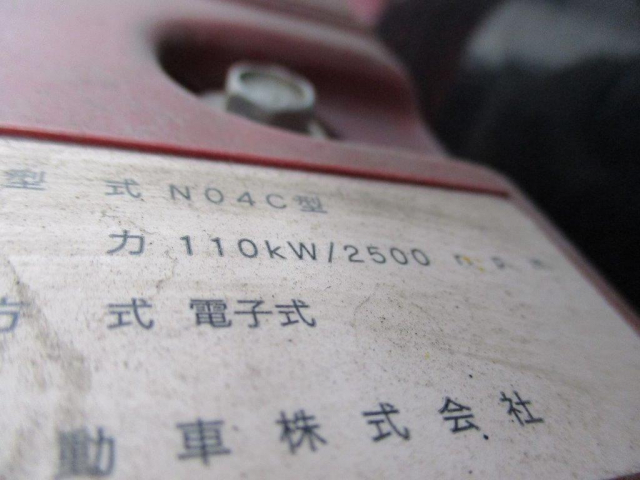 型 式 NO4C型
力 110kW/2500 r.p.m
方 式 電子式
動車株式会社